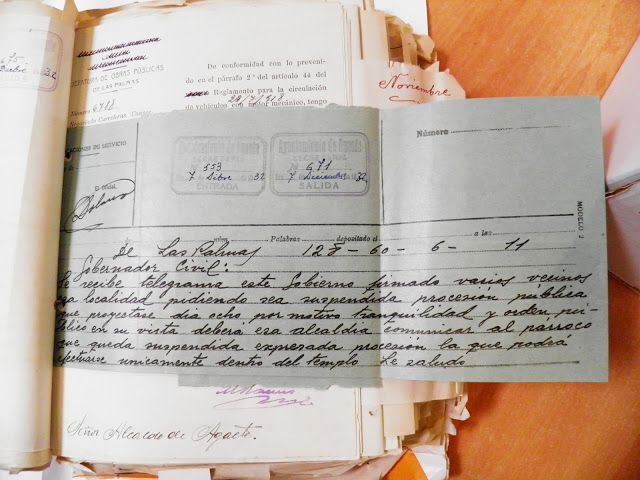 JEFATURA DE OBRAS PÚBLICAS
DE LAS PALMAS
Número 6718
De conformidad con lo preveni-
do en el párrafo 2º del artículo 44 del
Reglamento para la circulación
de vehículos con motor mecánico, tengo
Noviembre
32
CACIONES DE SERVICIO
El Oficial,
Ayuntamiento de Agaete
553
7 Dibre 32
ENTRADA
Ayuntamiento de Agaete
Nº 671
7 Diciembre 32
SALIDA
Número
MODELO 2
núm. Palabras depositado el a las
De Las Palmas 128 - 60 - 6 - 11
Gobernador Civil:
Se recibe telegrama este Gobierno firmado varios vecinos
esa localidad pidiendo sea suspendida procesión pública
que proyectase dia ocho por motivo tranquilidad y orden pú-
blico en su vista deberá esa alcaldia comunicar al parroco
que queda suspendida expresada procesión la que podrá
efectuarse unicamente dentro del templo. Le saludo
Señor Alcalde de Agaete.